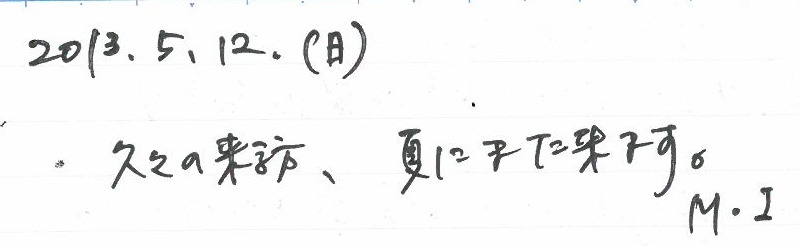 2013.5.12.(日)
・久々の来訪、夏にまた来ます。
M.I